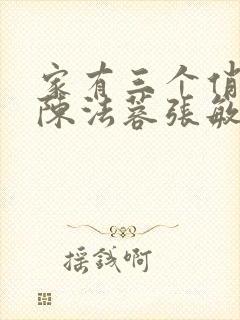 家有三个俏
陈法蓉张敏
摇钱啊